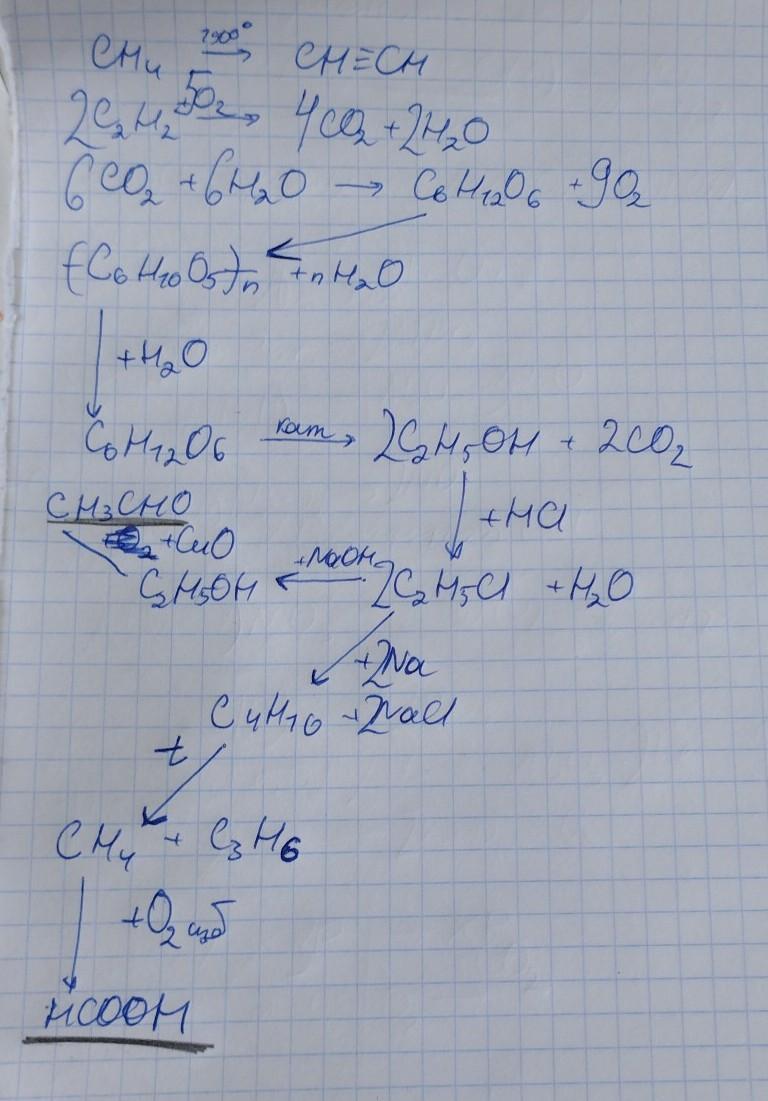 CH₄ 1500° → CH≡CH
2C₂H₂ +5O₂ → 4CO₂ + 2H₂O
6CO₂ + 6H₂O → C₆H₁₂O₆ + 9O₂
(C₆H₁₀O₅)n + nH₂O
+H₂O
C₆H₁₂O₆ кат → 2C₂H₅OH + 2CO₂
CH₃CHO
+HCl
+CuO
C₂H₅OH ← +NaOH 2C₂H₅Cl + H₂O
+2Na
C₄H₁₀ + 2NaCl
t
CH₄ + C₃H₆
+O₂ изб
HCOOH